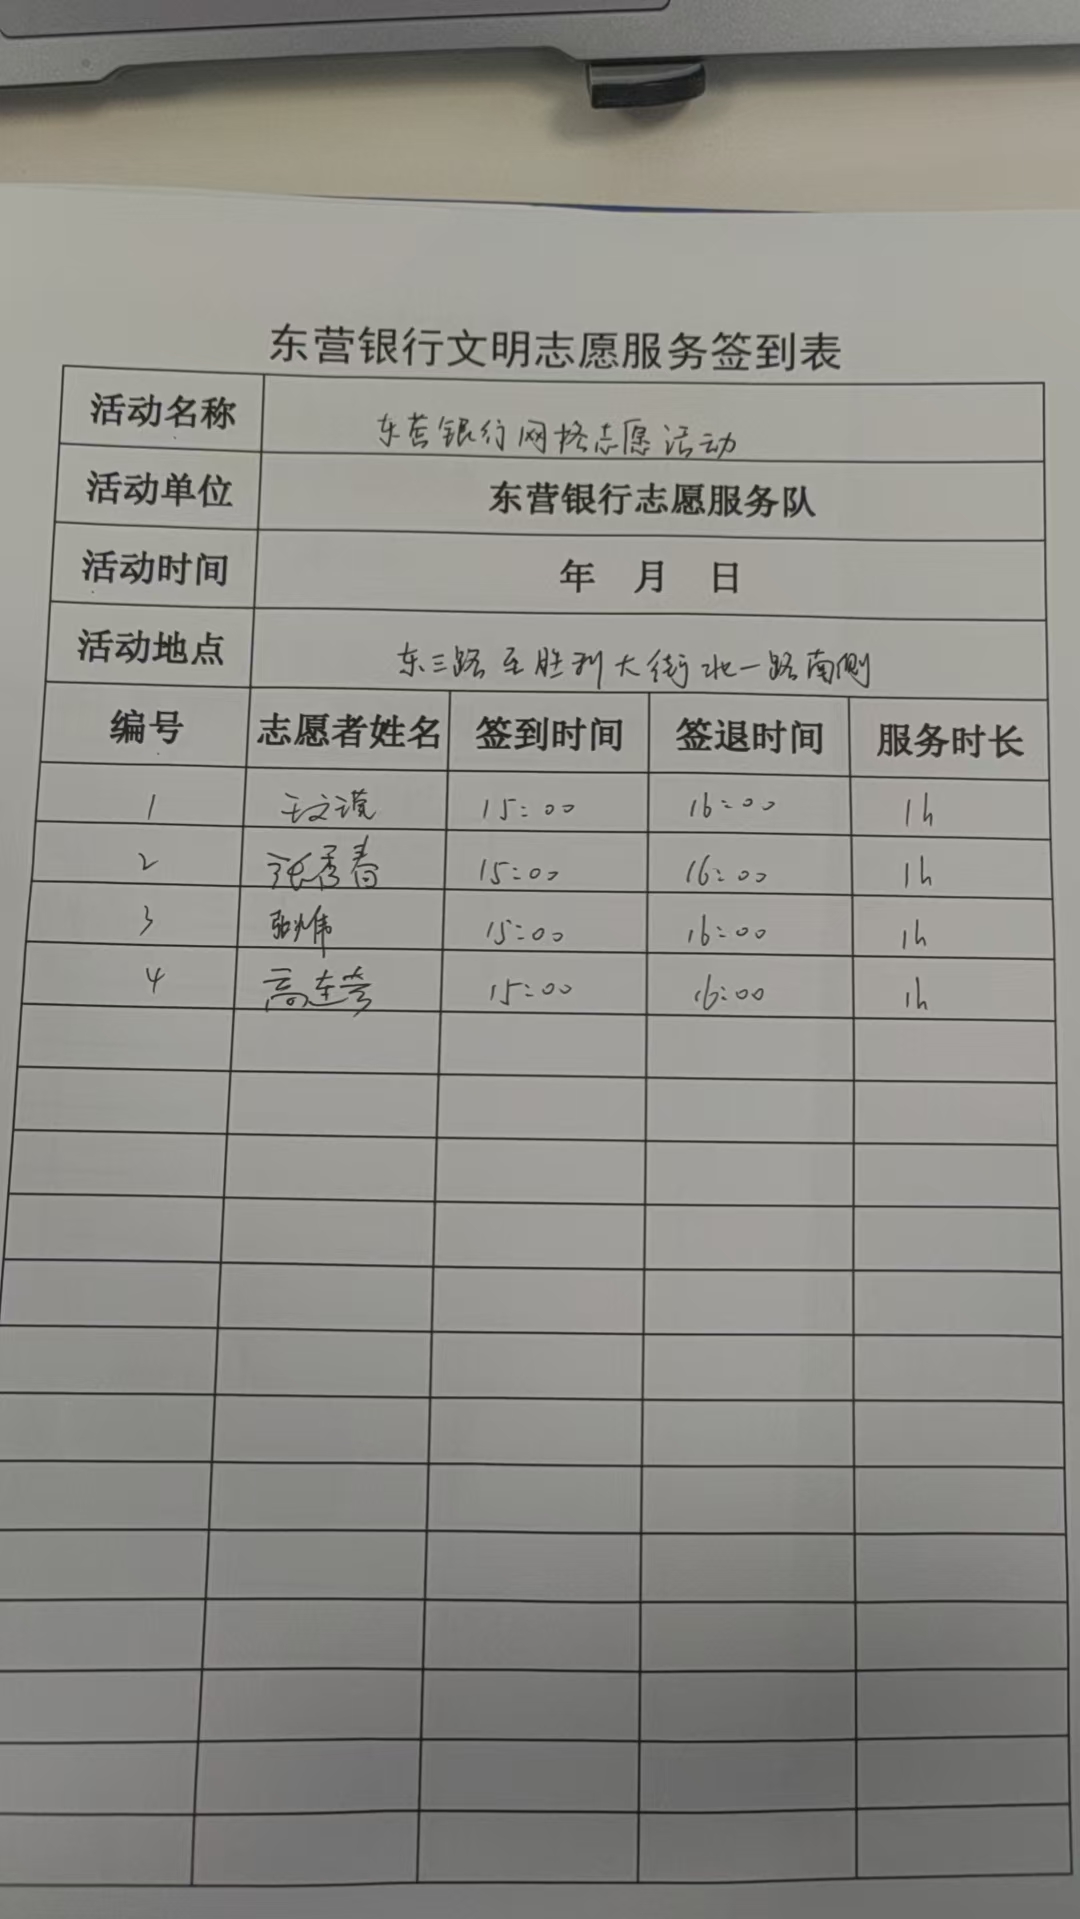 东营银行文明志愿服务签到表
活动名称 东营银行网格志愿活动
活动单位 东营银行志愿服务队
活动时间 年 月 日
活动地点 东三路至胜利大街北一路南侧
编号 志愿者姓名 签到时间 签退时间 服务时长
1 15:00 16:00 1h
2 张秀春 15:00 16:00 1h
3 15:00 16:00 1h
4 15:00 16:00 1h